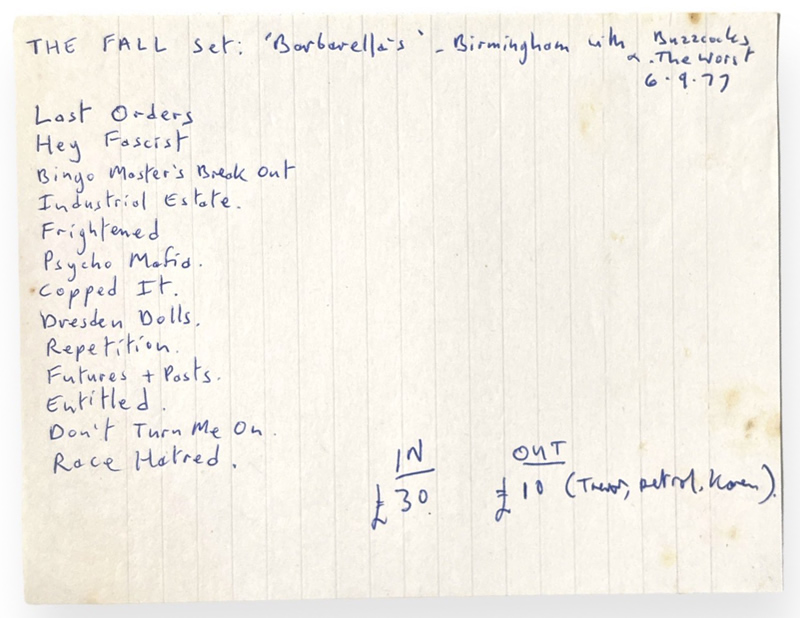 THE FALL set: 'Barbarella's' - Birmingham with Buzzcocks
& .The Worst
6.9.77
Last Orders
Hey Fascist
Bingo Master's Break Out
Industrial Estate.
Frightened
Psycho Mafia.
Copped It.
Dresden Dolls.
Repetition.
Futures + Pasts.
Entitled.
Don't Turn Me On.
Race Hatred.
IN OUT
£30 £10 (Trevor, petrol, Karen).